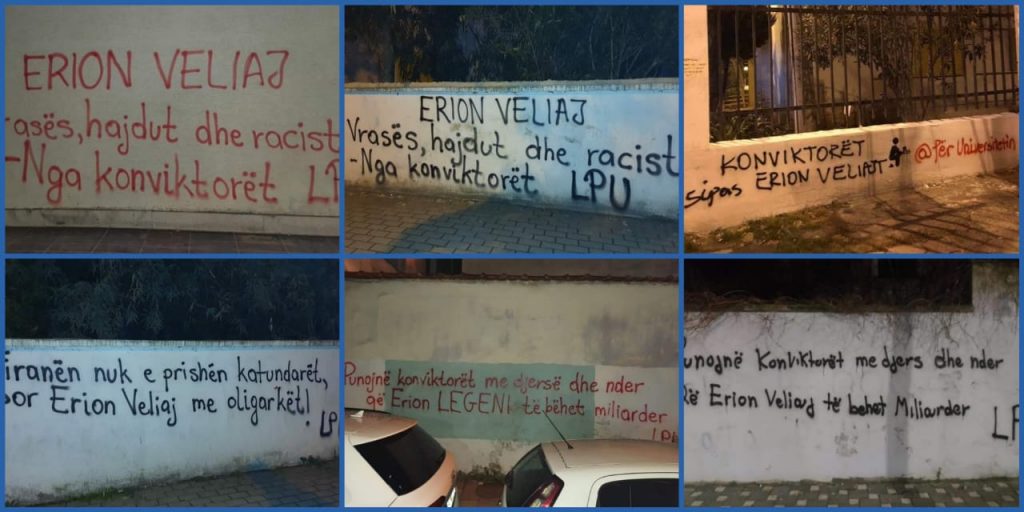 ERION VELIAJ
rasës, hajdut dhe racist
-Nga konviktorët LP
ERION VELIAJ
Vrasës, hajdut dhe racist
-Nga konviktorët LPU
KONVIKTORËT
sipas ERION VELIAJT:
@Për Universitetin
iranën nuk e prishën katundarët,
por Erion Veliaj me oligarkët!
LP
Punojnë konviktorët me djersë dhe nder
që Erion LEGENI të bëhet miliarder
LPU
unojnë Konviktorët me djers dhe nder
që Erion Veliaj të behet Miliarder
LP